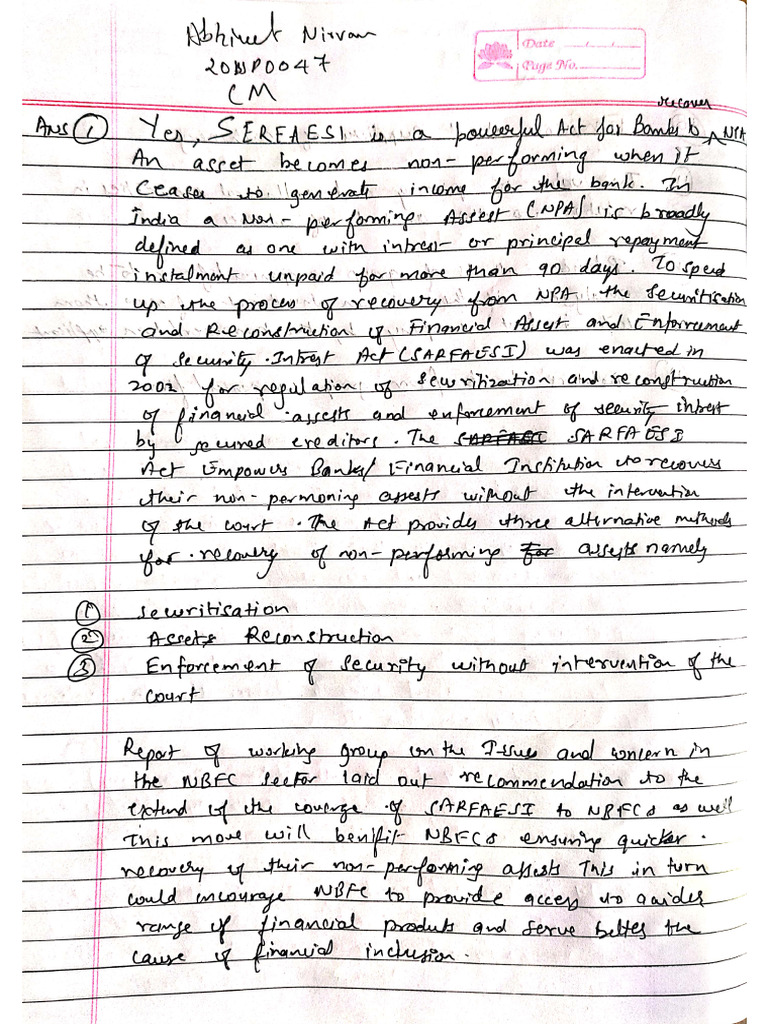 Abhineet Nirvan
Date
20BSP0047
Page No.
CM
recover
Ans ① Yes, SERFAESI is a powerful Act for Banks to ^ NPA
An asset becomes non-performing when it
Ceases to generate income for the bank. In
India a Non-performing Assest (NPA) is broadly
defined as one with intrest or principal repayment
instalment unpaid for more than 90 days. To speed
up the process of recovery from NPA the Securitisation
and Reconstruction of Financial Assest and Enforcement
of Security Intrest Act (SARFAESI) was enacted in
2002 for regulation of securitization and reconstruction
of financial assests and enforcement of security intrest
by secured creditors. The SARFAESI SARFAESI
Act Empowers Banks/Financial Institution to recovers
their non-permoning assests without the intervention
of the court. The Act provides three alternative methods
for recovery of non-performing for assests namely
① Securitisation
② Assets Reconstruction
③ Enforcement of Security without intervention of the
court
Report of working group on the Issues and concern in
the NBFC sector laid out recommendation to the
extend of the coverge of SARFAESI to NBFCs as well
This move will benifit NBFCs ensuring quicker
recovery of their non-performing assests This in turn
could encourage NBFC to provide access to a wider
range of financial produts and serve better the
cause of financial inclusion.